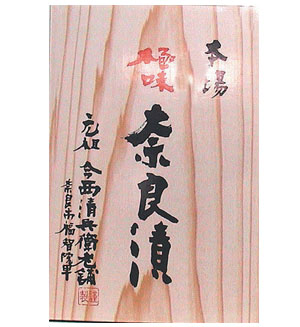 本場
極味
奈良漬
元祖 今西清兵衛老舗
奈良市福智院
謹製